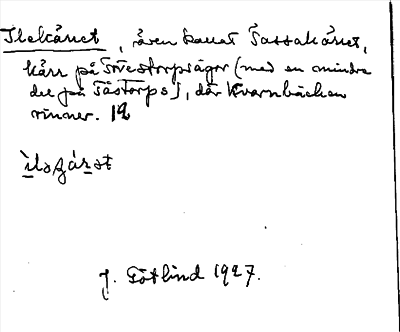 Ilekärret, även kallat Tassakärret,
kärr på Tovestorpsägor (med en mindre
del på Tåstorps), där Kvarnbäcken
rinner. 12
ìləʒáʀət
J. Götlind 1927.